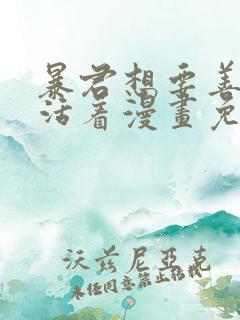 暴君想要善
活看漫畫免
沃茲尼亞克
未经同意禁止转载